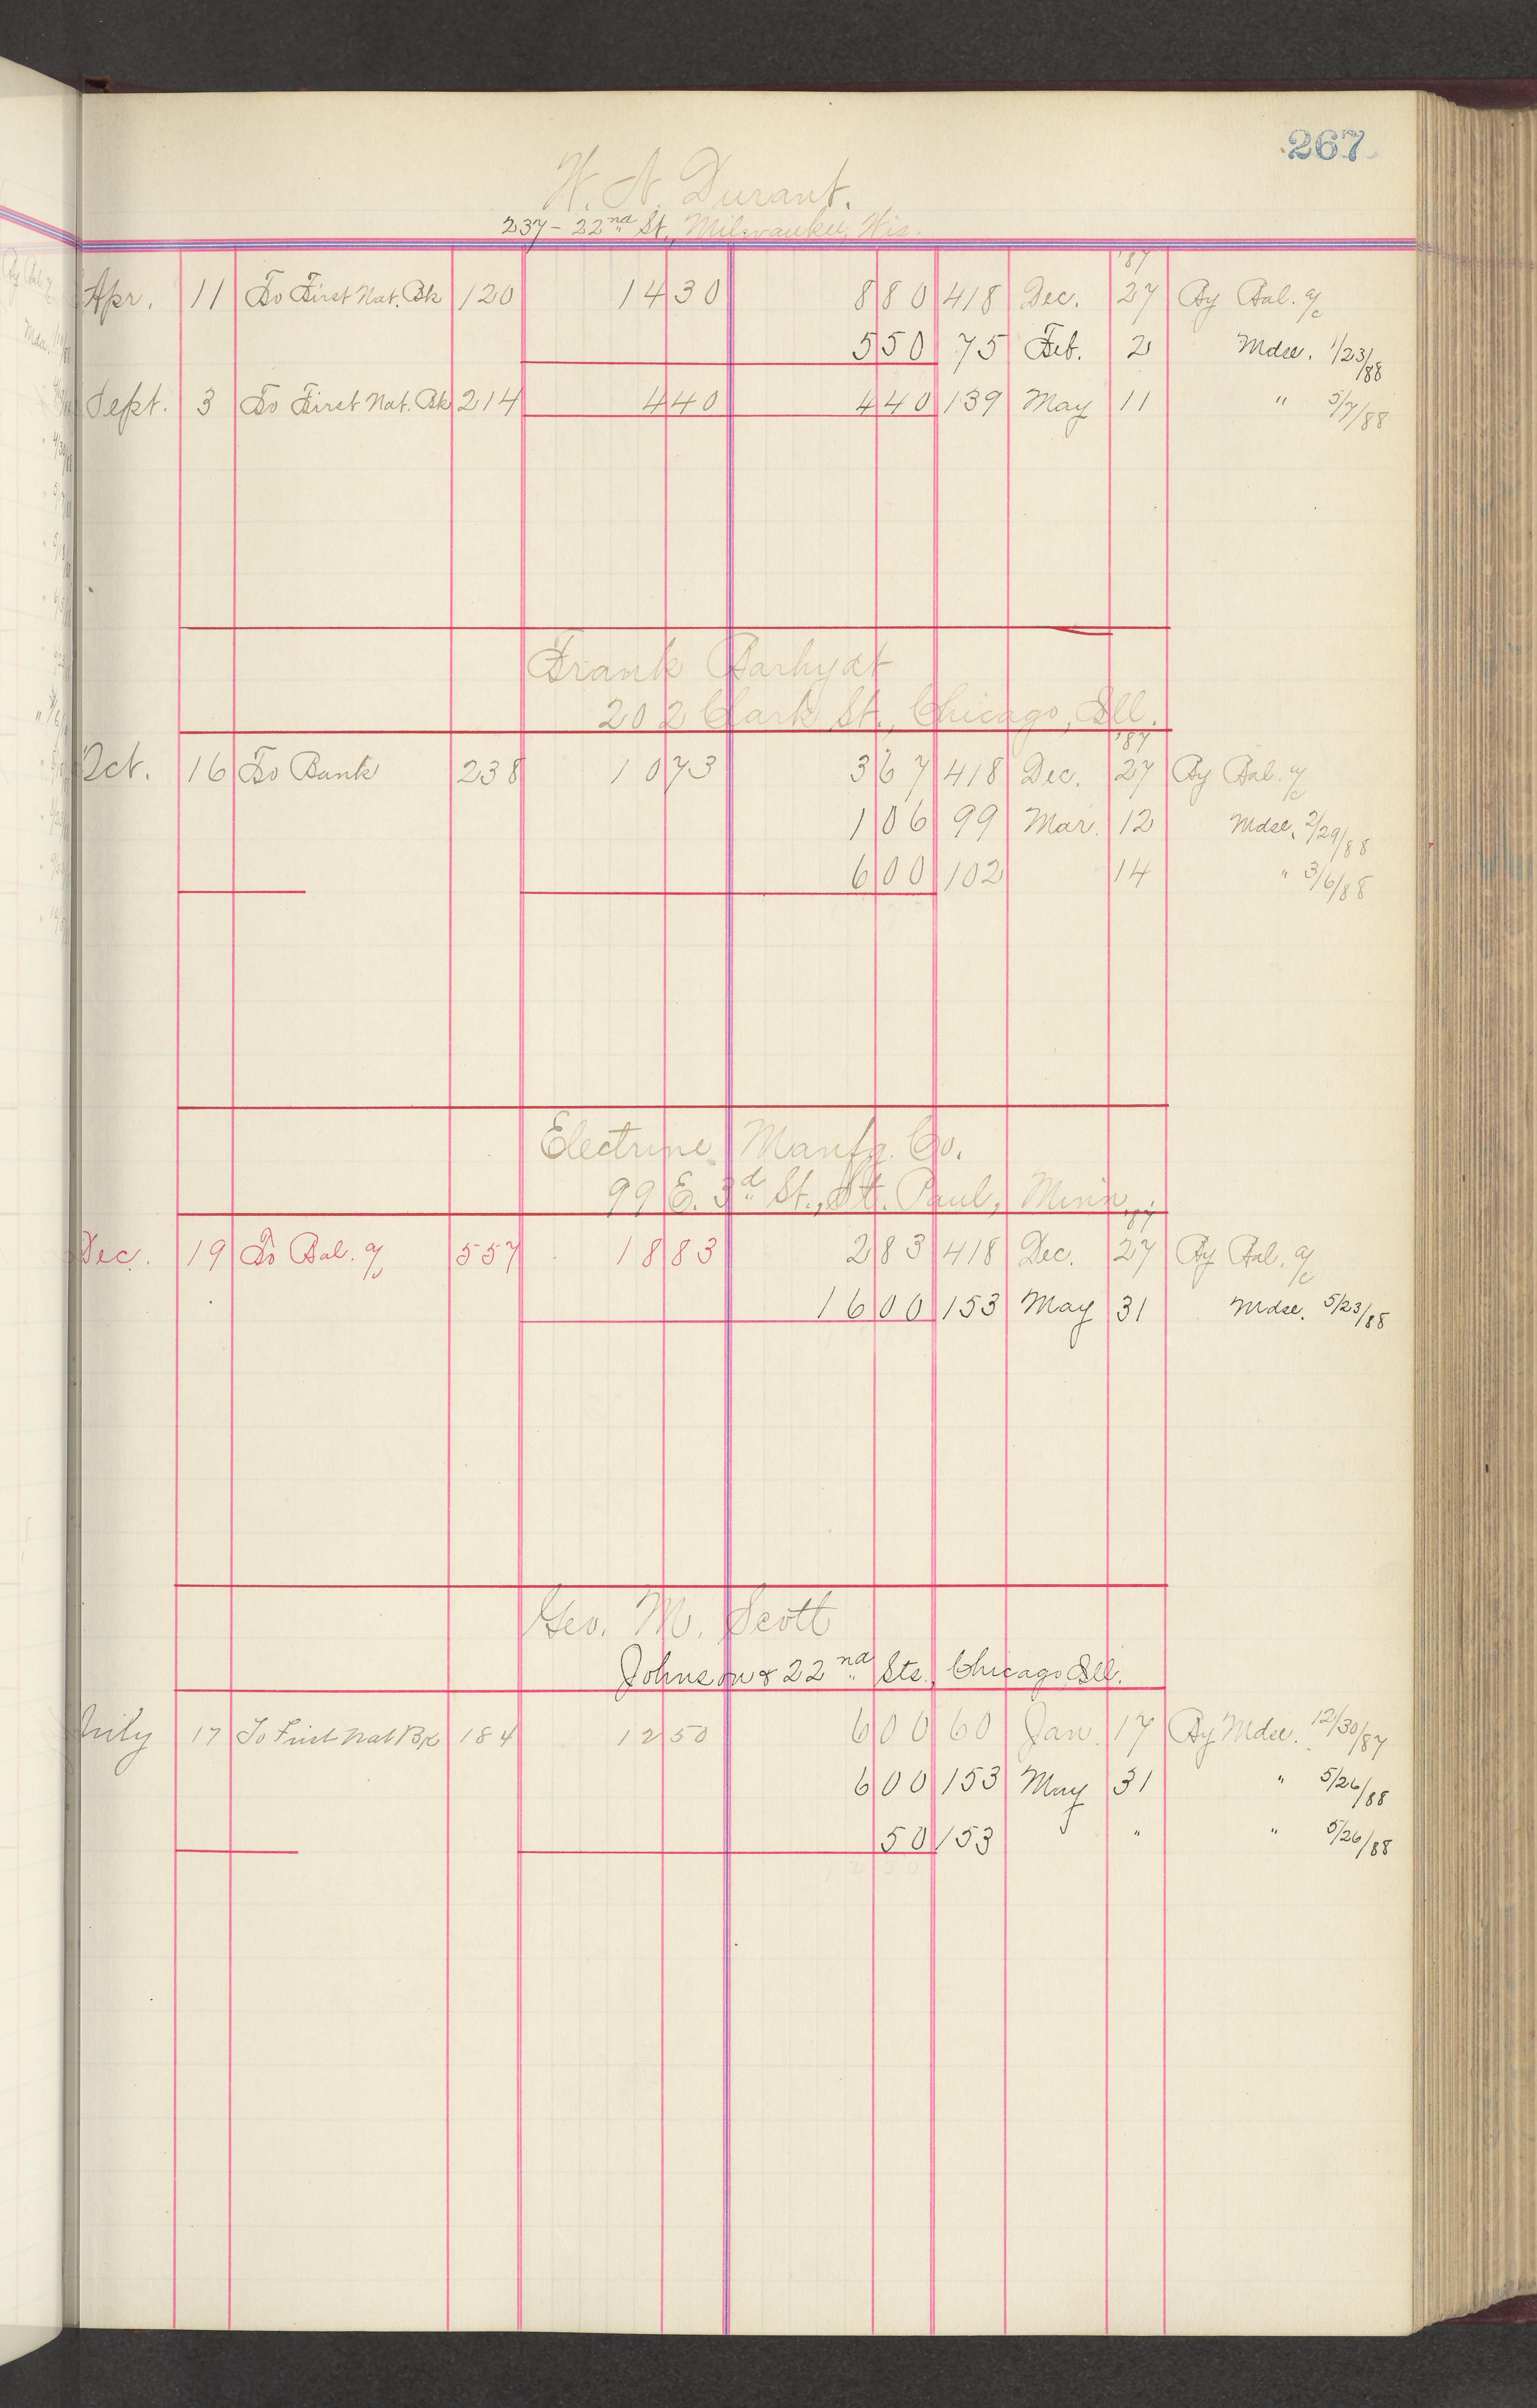 267
H. A. Durant.
237 - 22nd St., Milwaukee, Wis.
'87
Apr. 11 To First Nat. Bk 120 14 30 8 80 418 Dec. 27 By Bal. a/c
5 50 75 Feb. 2 Mdse. 1/23/88
Sept. 3 To First Nat. Bk 214 4 40 4 40 139 May 11 " 5/7/88
Frank Barhydt
202 Clark St., Chicago, Ill.
'87
Oct. 16 To Bank 238 10 73 3 67 418 Dec. 27 By Bal. a/c
1 06 99 Mar. 12 Mdse. 2/29/88
6 00 102 14 " 3/6/88
Electrine Manfg. Co.
99 E. 3d St., St. Paul, Minn.
'87
Dec. 19 To Bal. a/c 557 18 83 2 83 418 Dec. 27 By Bal. a/c
16 00 153 May 31 Mdse. 5/23/88
Geo. M. Scott
Johnson & 22nd Sts., Chicago Ill.
July 17 To First Nat Bk 184 12 50 6 00 60 Jan. 17 By Mdse. 12/30/87
6 00 153 May 31 " 5/26/88
50 153 " " 5/26/88